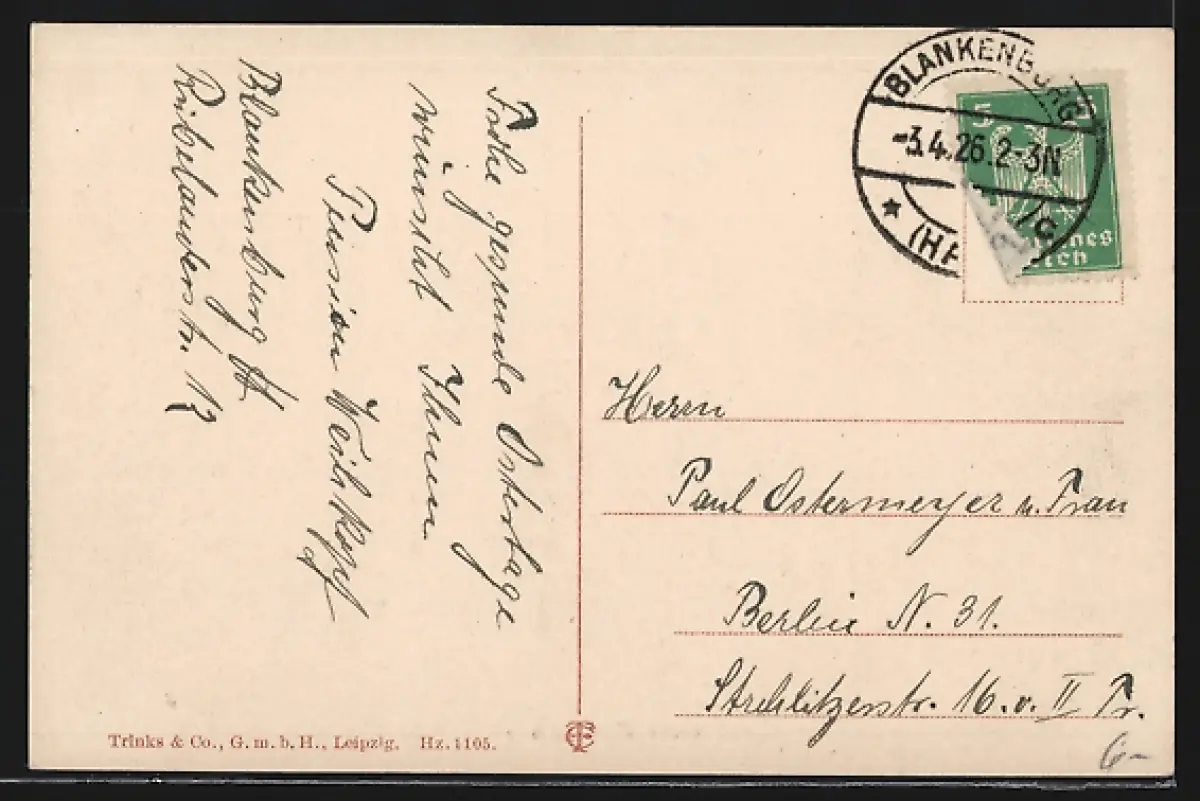 Frohe gesunde Ostertage
wünscht Ihnen
Pension Weihkopf
Blankenburg H
Rübelanderstr. 17
BLANKENBURG
-3.4.26.2-3N
(HA
5
Herrn
Paul Ostermeyer u. Frau
Berlin N. 31.
Strehlitzerstr. 16. v. II Tr.
6-
Trinks & Co., G. m. b. H., Leipzig. Hz. 1105.